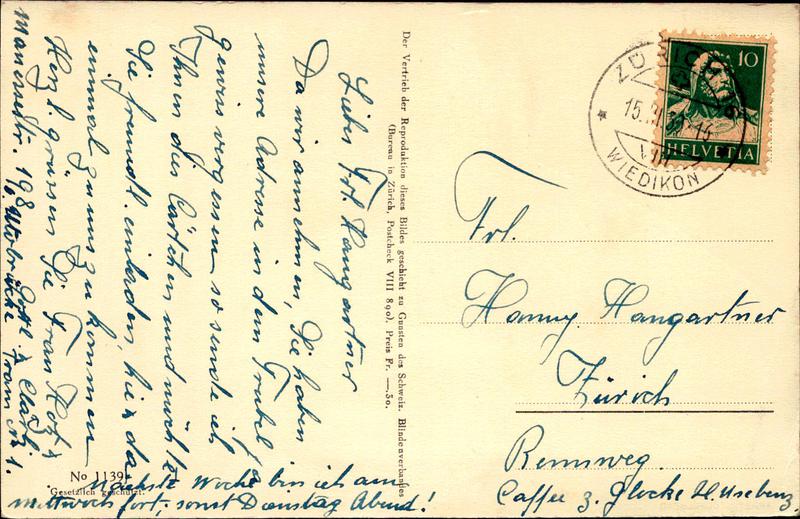 Liebes Frl. Hangartner
Da wir annehmen, Sie haben
unsere Adresse in dem Trubel ja
gewiss vergessen so sende ich
Ihnen dies Kärtchen und möchte
Sie freundl. einladen, hie & da
einmal zu uns zu kommen
Herzl. grüssen Sie Frau Hotz &
Gotl. & Clärli
Manessestr. 198
b. Utobrücke Tram Nr 1.
Nächste Woche bin ich am
Mittwoch fort, sonst Dienstag Abend!
No 1139
Gesetzlich geschützt.
Der Vertrieb der Reproduktion dieses Bildes geschieht zu Gunsten des Schweiz. Blindenverbandes
(Bureau in Zürich, Postcheck VIII 890). Preis Fr. —.30.
ZÜRICH
15.
VIII
WIEDIKON
10
HELVETIA
Frl.
Hanny Hangartner
Zürich
Rennweg.
Caffee z. Glocke H. Usebenz